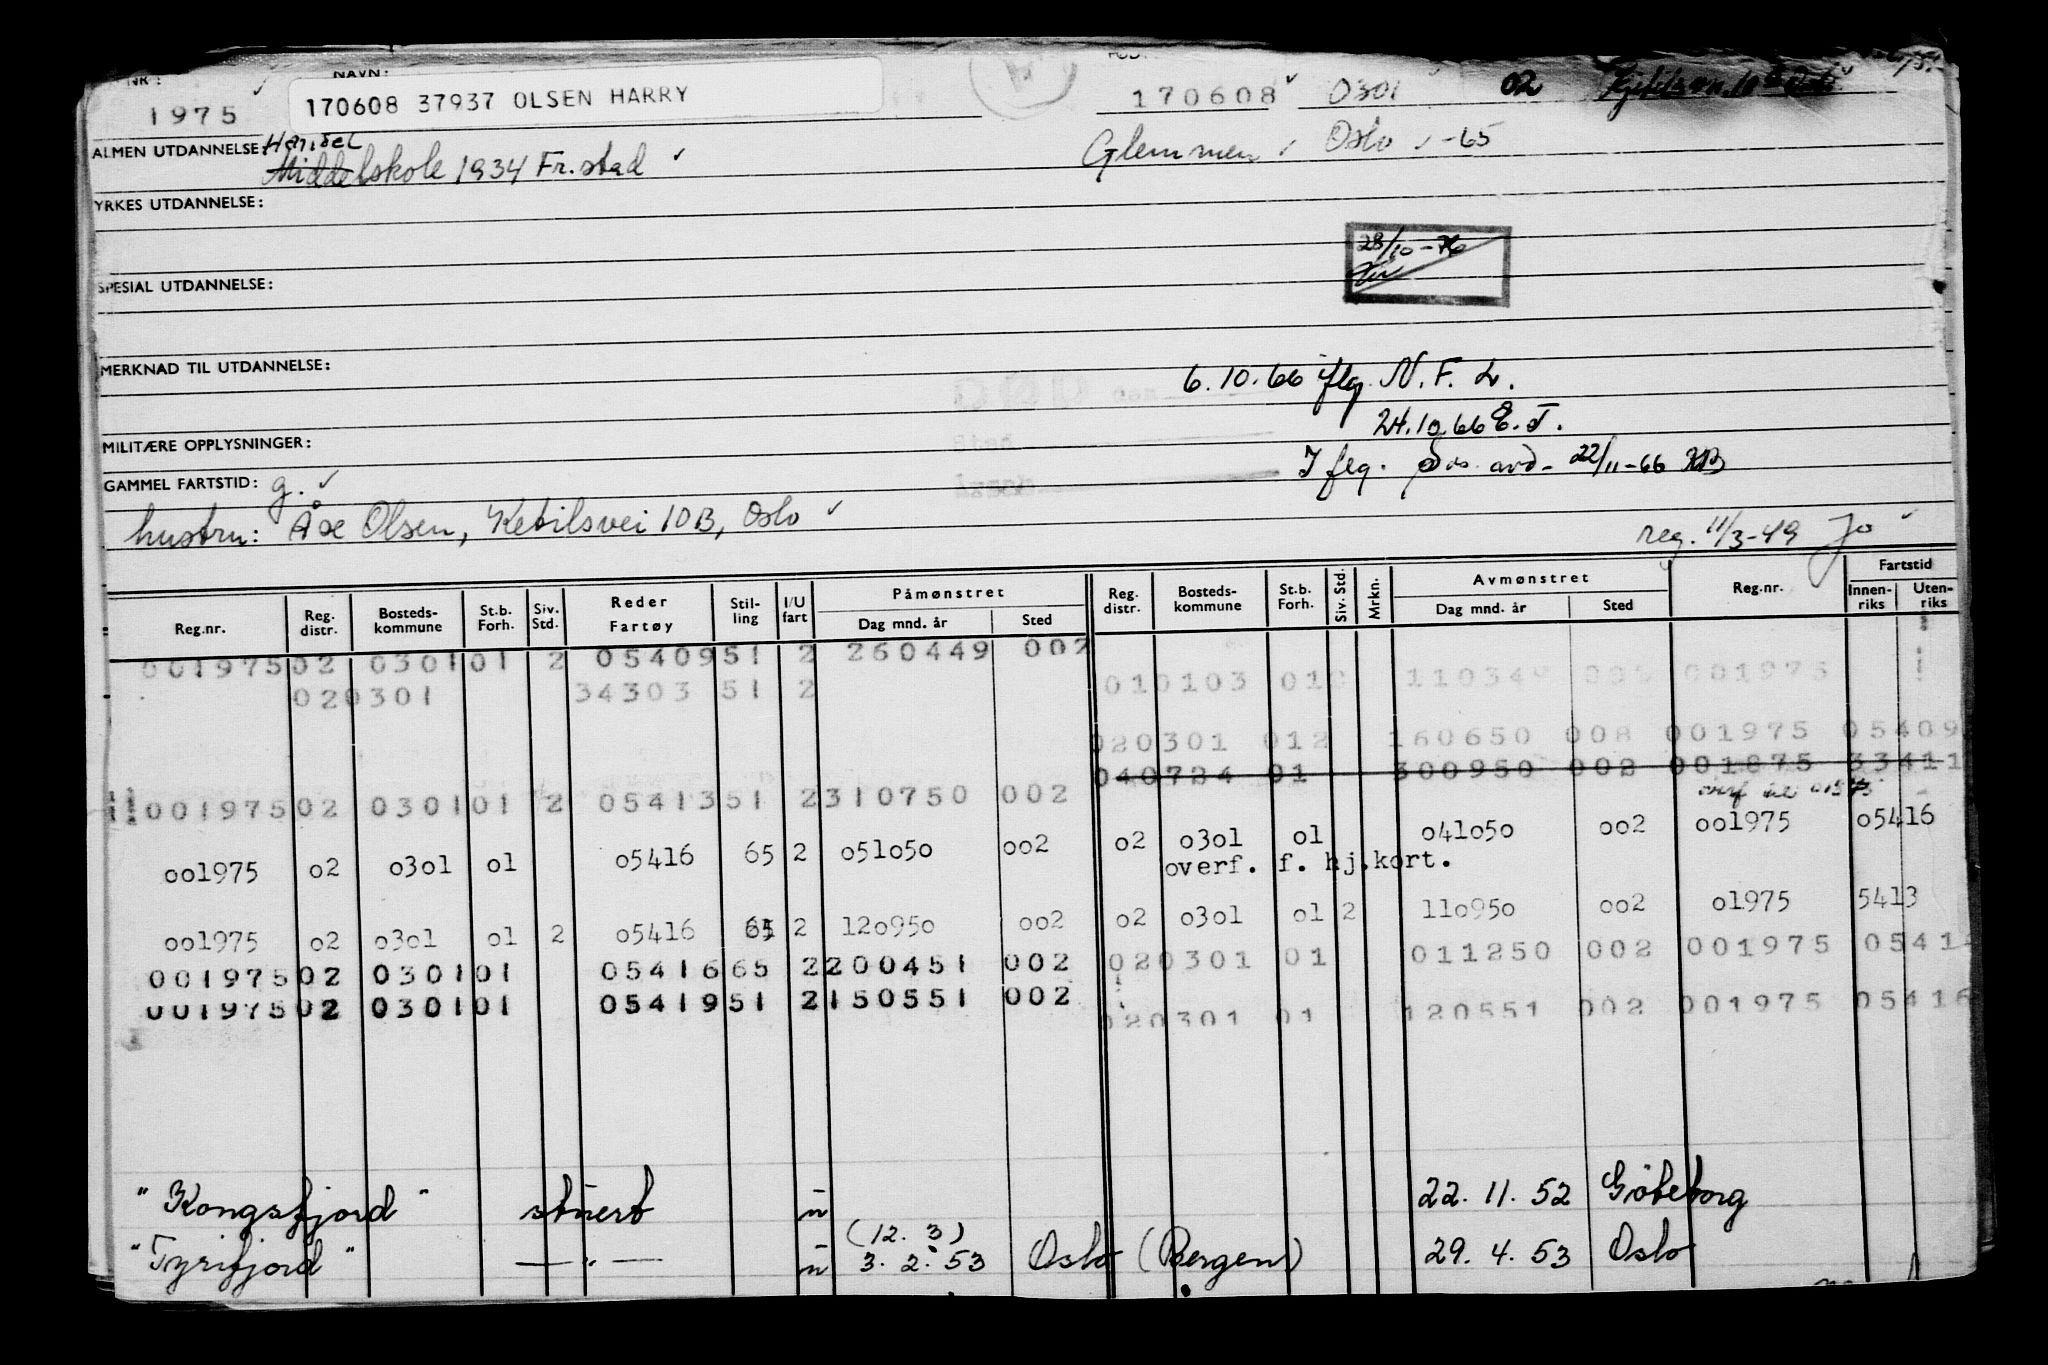 NR: NAVN:
1975 170608 37937 OLSEN HARRY 170608 0301 02
ALMEN UTDANNELSE: Handel Glemmen Oslo -65
Middelskole 1934 Fr.stad
YRKES UTDANNELSE:
28/10-76
SPESIAL UTDANNELSE:
MERKNAD TIL UTDANNELSE:
6.10.66 iflg. N.F.L.
24.10.66 E.T.
MILITÆRE OPPLYSNINGER:
I flg. avd. 22/11-66
GAMMEL FARTSTID: g.
hustru: Olsen, Ketilsvei 10B, Oslo
reg. 11/3-49 Jo
Reg.nr. Reg. distr. Bosteds-kommune St.b. Forh. Siv. Std. Reder Fartøy Stil-ling I/U fart Påmønstret Dag mnd. år Sted Reg. distr. Bosteds-kommune St.b. Forh. Siv. Std. Mrkn. Avmønstret Dag mnd. år Sted Reg.nr. Fartstid Innen-riks Uten-riks
001975 02 0301 01 2 05409 51 2 260449 002
02 0301 34303 51 2 01 0103 01 110349 001975
02 0301 01 2 160650 008 001975 05409
04 0724 01 300950 002 001875 33411
001975 02 0301 01 2 05413 51 2 310750 002
02 0301 01 041050 002 001975 05416
001975 02 0301 01 05416 65 2 051050 002 overf. f. hj.kort.
02 0301 01 2 110950 002 01975 5413
001975 02 0301 01 2 05416 65 2 120950 002
02 0301 01 011250 002 001975 0541
001975 02 0301 01 05416 65 2 200451 002
001975 02 0301 01 05419 51 2 150551 002
020301 01 120551 002 001975 05416
"Kongsfjord" stuert u 22. 11. 52 Göteborg
(12. 3)
"Tyrifjord" — " — u 3. 2. 53 Oslo (Bergen) 29. 4. 53 Oslo